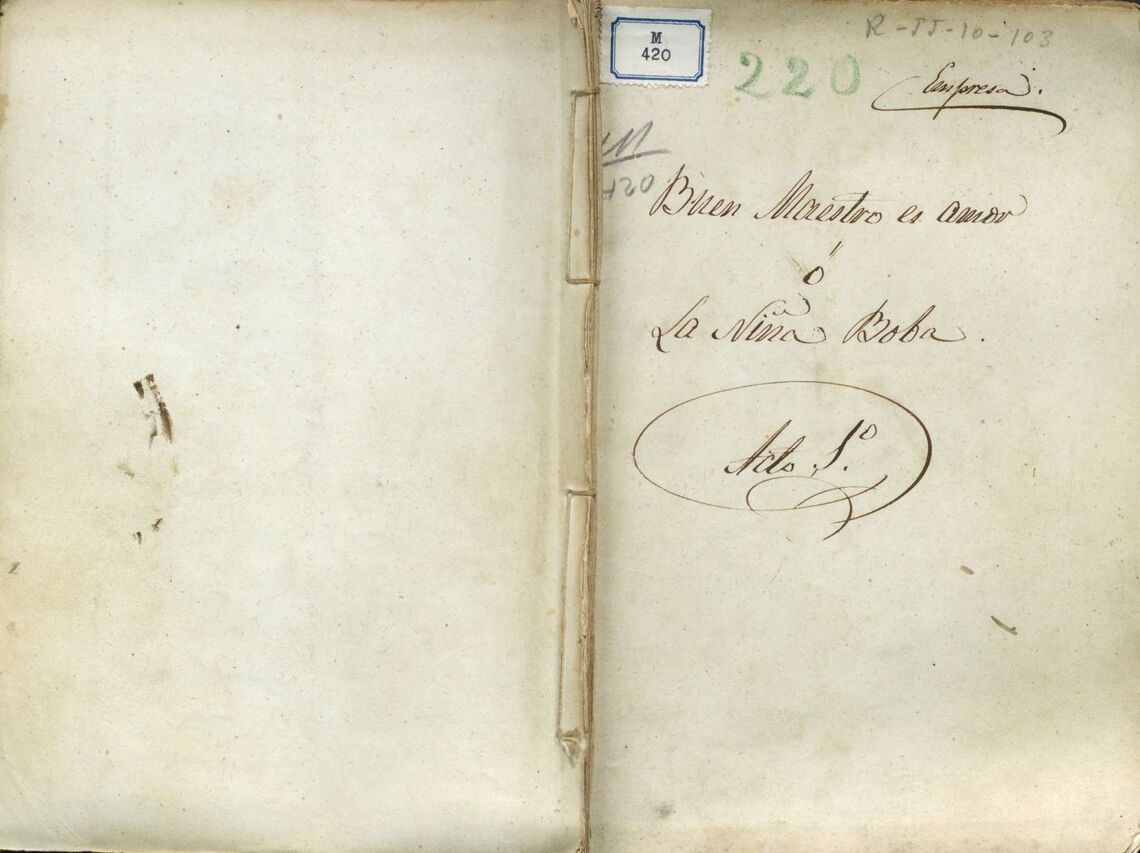 M
420
220
R-II-10-103
Empresa.
M
420
Buen Maestro es amor
ó
La Niña Boba.
Acto 1º.